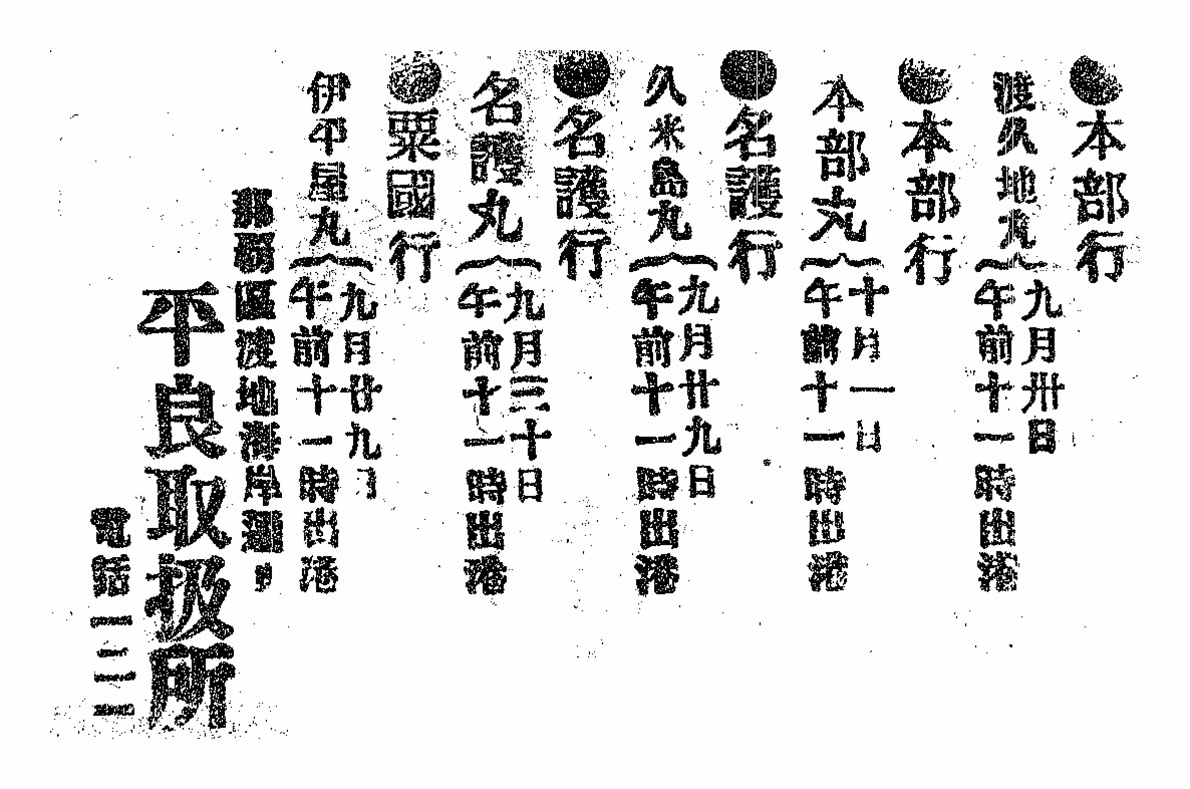 ●本部行
渡久地丸{九月卅日
午前十一時出港
●本部行
本部丸{十月一日
午前十一時出港
●名護行
久米島丸{九月廿九日
午前十一時出港
●名護行
名護丸{九月三十日
午前十一時出港
●粟國行
伊平屋丸{九月廿九日
午前十一時出港
那覇區渡地海岸通り
平良取扱所
電話一三一